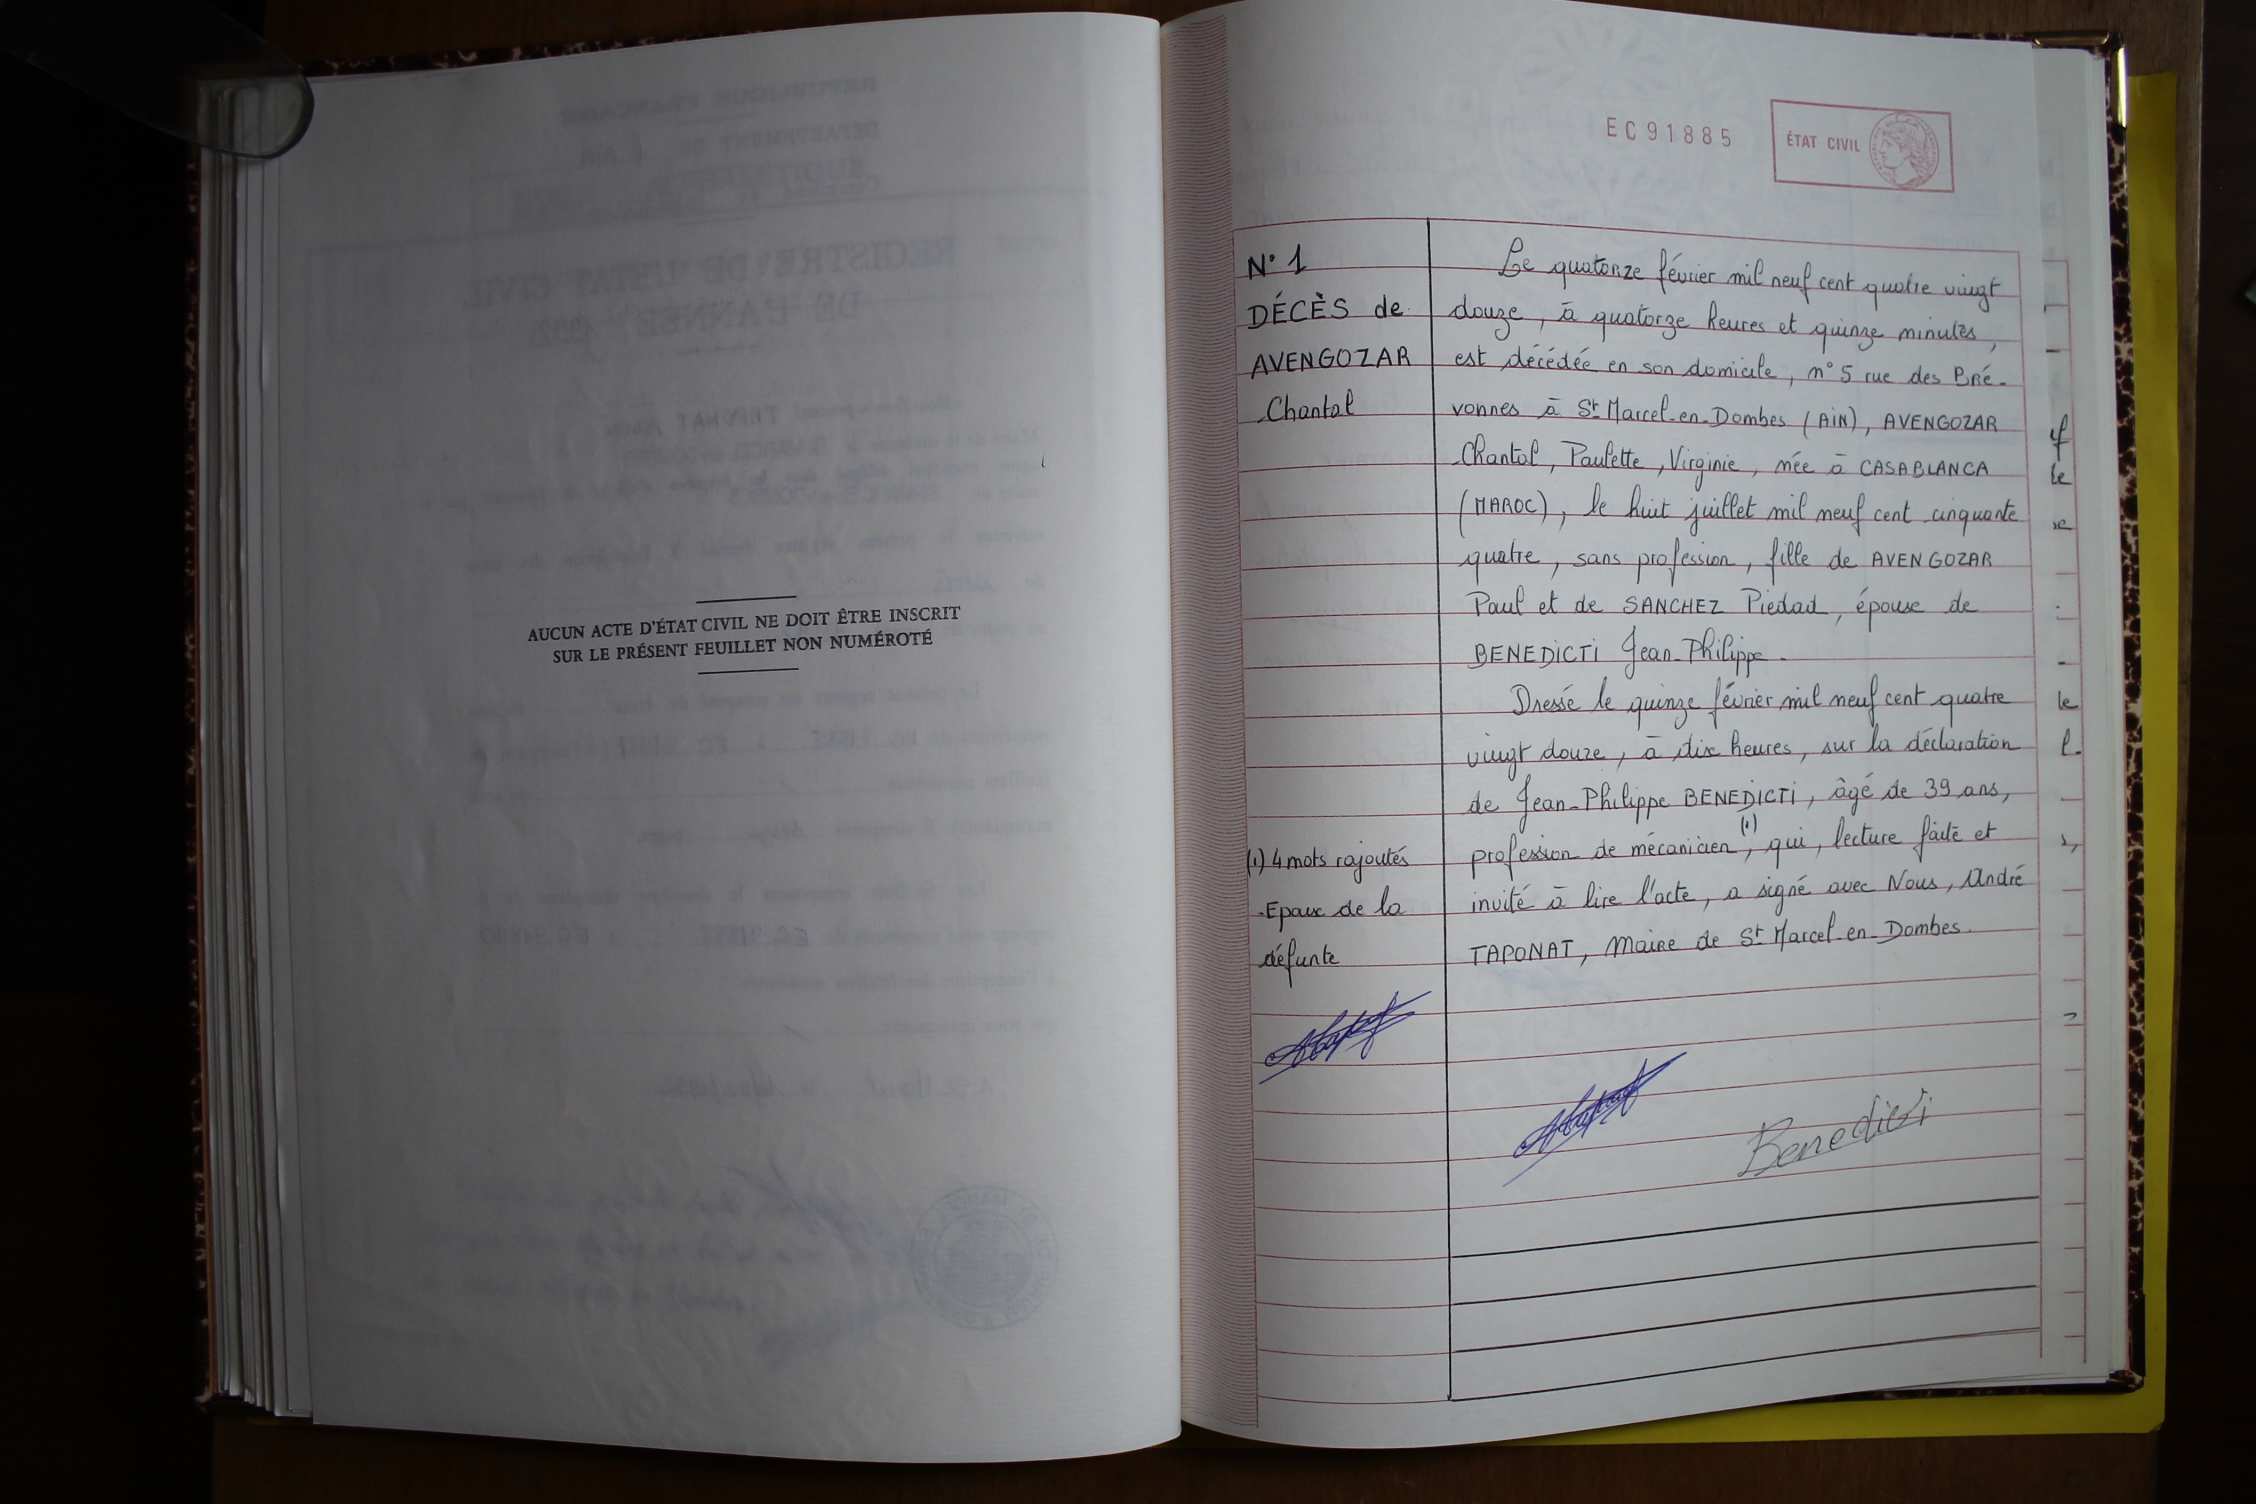 AUCUN ACTE D'ÉTAT CIVIL NE DOIT ÊTRE INSCRIT
SUR LE PRÉSENT FEUILLET NON NUMÉROTÉ
EC91885
ÉTAT CIVIL
N° 1
DÉCÈS de
AVENGOZAR
Chantal
(1) 4 mots rajoutés
Epoux de la
défunte
Le quatorze février mil neuf cent quatre vingt
douze, à quatorze heures et quinze minutes,
est décédée en son domicile, n° 5 rue des Bré-
vonnes à St Marcel-en-Dombes (AIN), AVENGOZAR
Chantal, Paulette, Virginie, née à CASABLANCA
(MAROC), le huit juillet mil neuf cent cinquante
quatre, sans profession, fille de AVENGOZAR
Paul et de SANCHEZ Piedad, épouse de
BENEDICTI Jean-Philippe.
Dressé le quinze février mil neuf cent quatre
vingt douze, à dix heures, sur la déclaration
de Jean-Philippe BENEDICTI, âgé de 39 ans,
profession de mécanicien (1), qui, lecture faite et
invité à lire l'acte, a signé avec Nous, André
TAPONAT, Maire de St Marcel-en-Dombes.
Benedicti